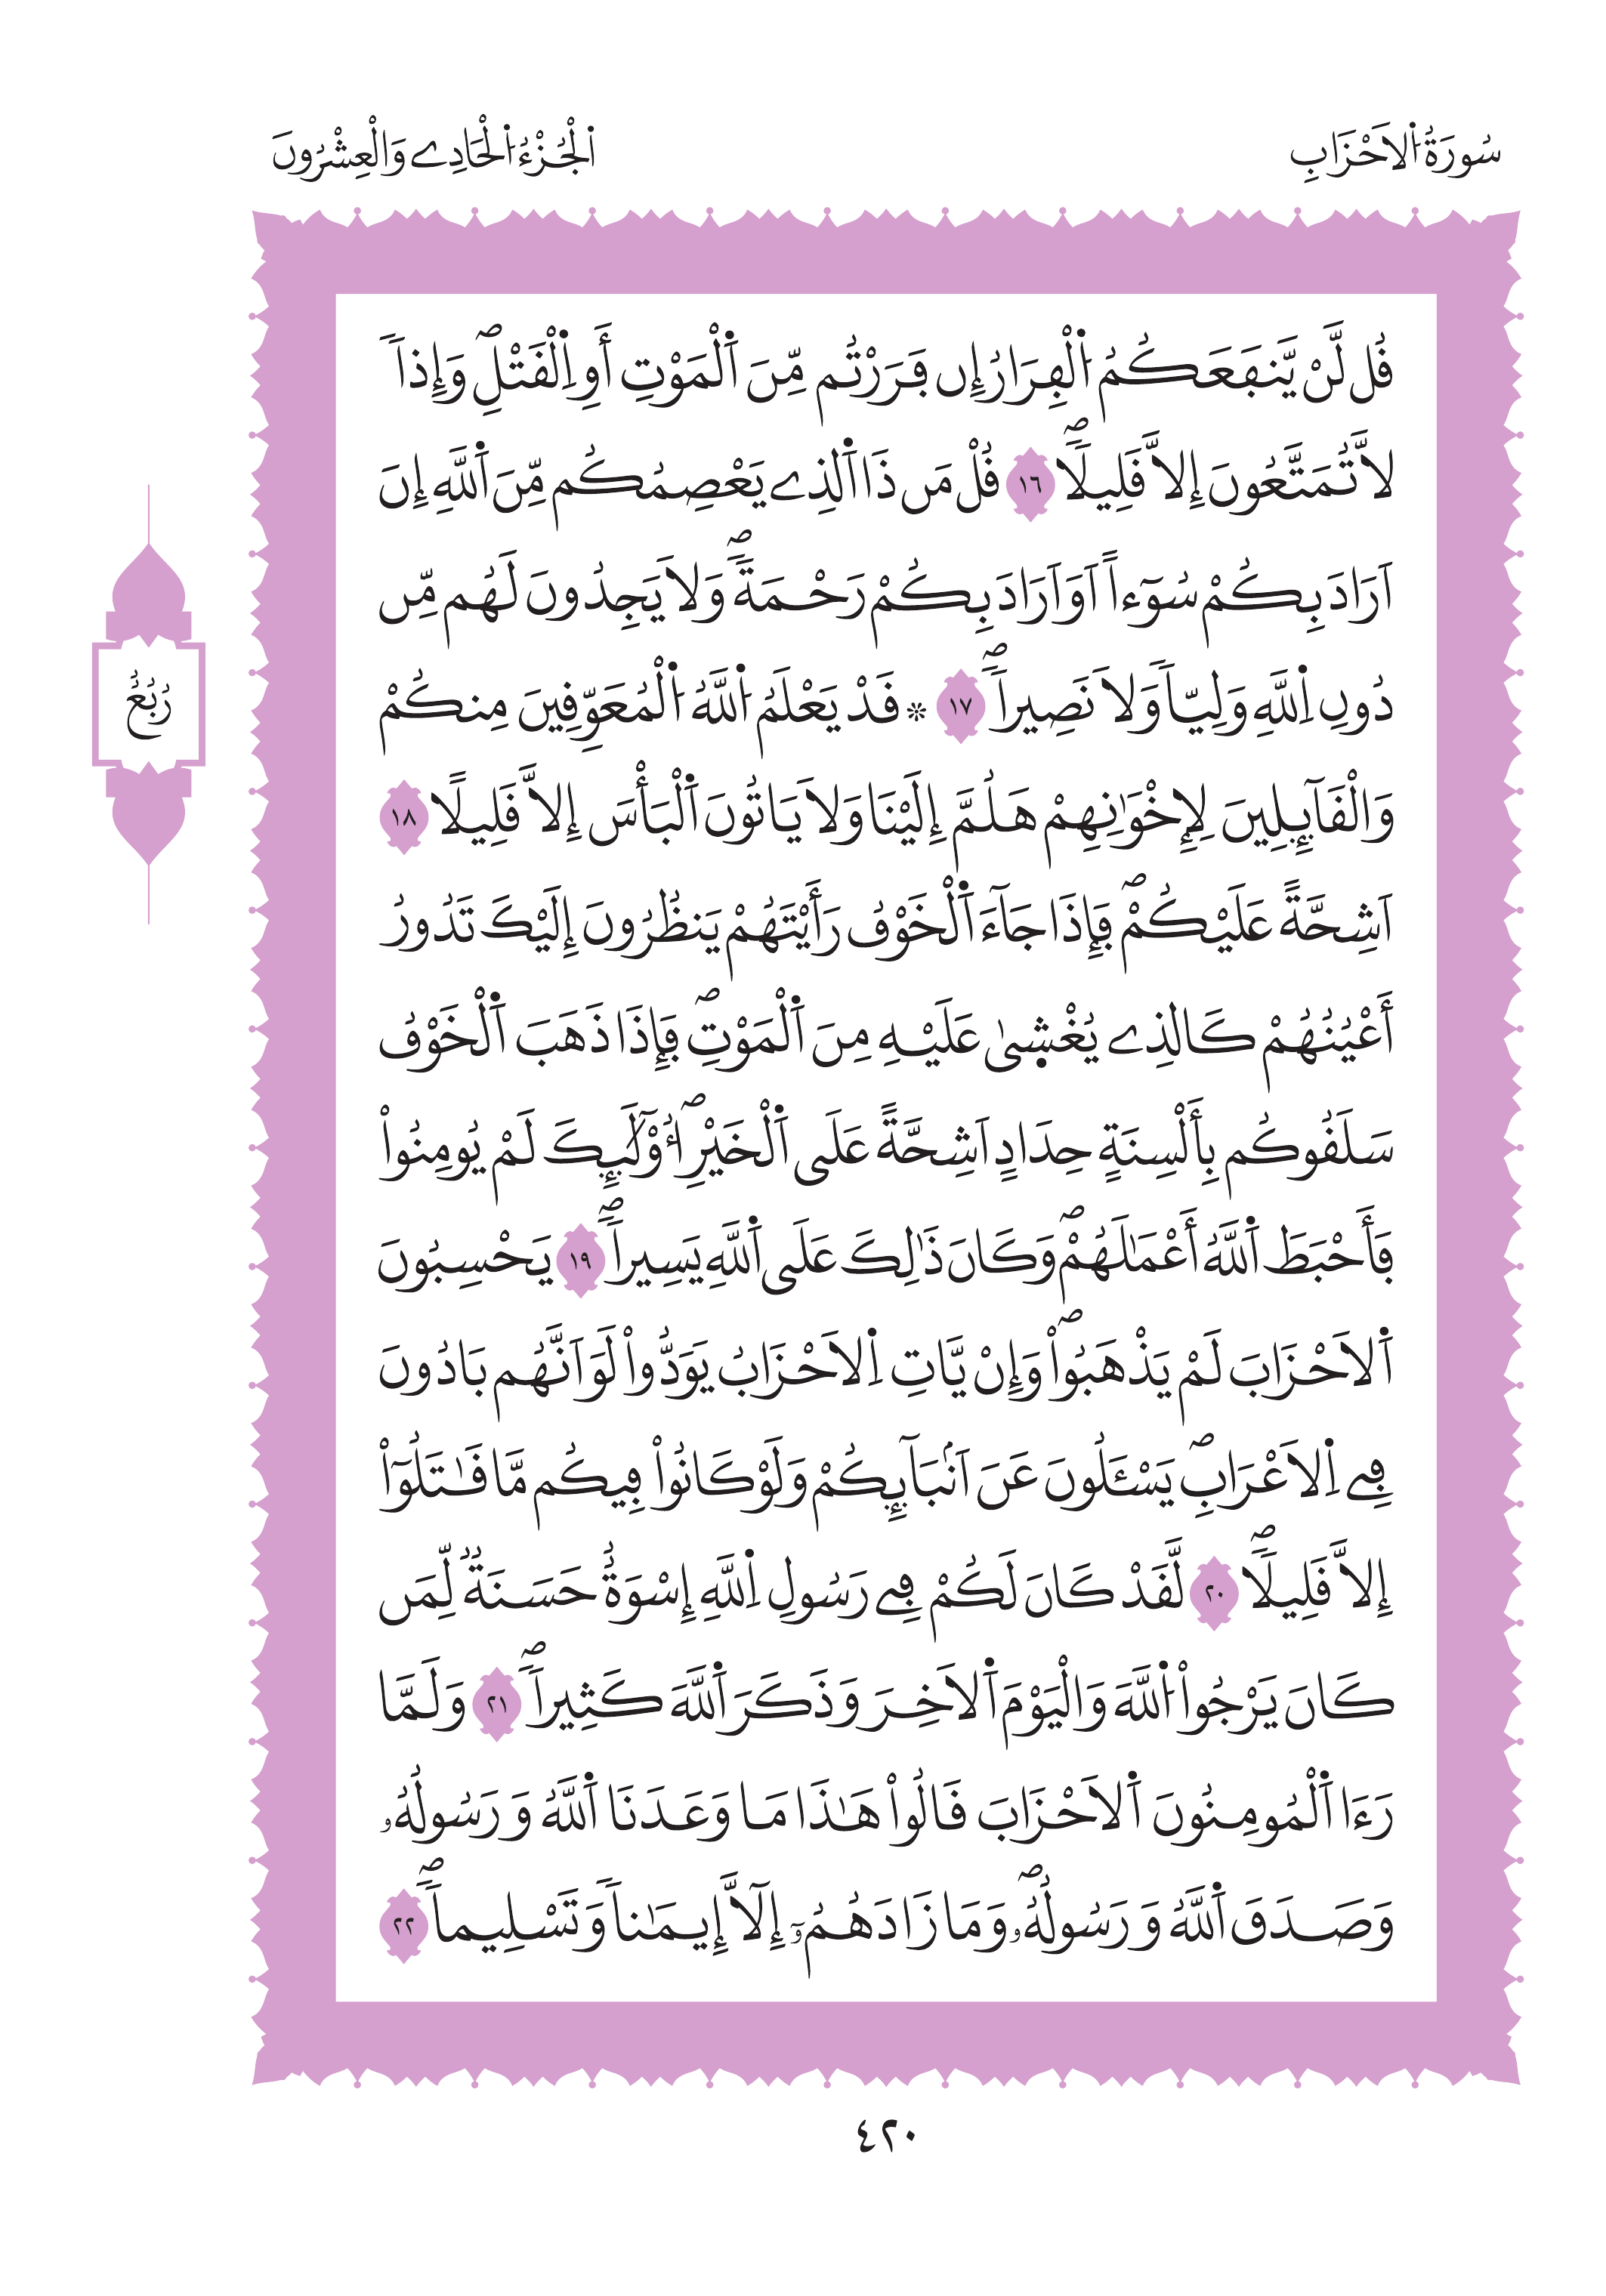 سُورَةُ اُ۬لَاحْزَابِ
اَ۬لْجُزْءُ اُ۬لْحَادِے وَالْعِشْرُونَ
قُل لَّنْ يَّنفَعَكُمُ اُ۬لْفِرَارُ إِن فَرَرْتُم مِّنَ اَ۬لْمَوْتِ أَوِ اِ۬لْقَتْلِۖ وَإِذاٗ
لَّا تُمَتَّعُونَ إِلَّا قَلِيلٗاۖ ١٦ قُلْ مَن ذَا اَ۬لذِے يَعْصِمُكُم مِّنَ اَ۬للَّهِ إِنَ
اَرَادَ بِكُمْ سُوٓءاً اَوَ اَرَادَ بِكُمْ رَحْمَةٗۖ وَلَا يَجِدُونَ لَهُم مِّن
دُونِ اِ۬للَّهِ وَلِيّاٗ وَلَا نَصِيراٗۖ ١٧ ۞ قَدْ يَعْلَمُ اُ۬للَّهُ اُ۬لْمُعَوِّقِينَ مِنكُمْ
وَالْقَآئِلِينَ لِإِخْوَٰنِهِمْ هَلُمَّ إِلَيْنَا وَلَا يَاتُونَ اَ۬لْبَأْسَ إِلَّا قَلِيلًا ١٨
اَشِحَّةً عَلَيْكُمْۖ فَإِذَا جَآءَ اَ۬لْخَوْفُ رَأَيْتَهُمْ يَنظُرُونَ إِلَيْكَ تَدُورُ
أَعْيُنُهُمْ كَالذِے يُغْش۪يٰ عَلَيْهِ مِنَ اَ۬لْمَوْتِۖ فَإِذَا ذَهَبَ اَ۬لْخَوْفُ
سَلَقُوكُم بِأَلْسِنَةٍ حِدَادٍ اَشِحَّةً عَلَي اَ۬لْخَيْرِۖ أُوْلَٰٓئِكَ لَمْ يُومِنُواْ
فَأَحْبَطَ اَ۬للَّهُ أَعْمَٰلَهُمْۖ وَكَانَ ذَٰلِكَ عَلَي اَ۬للَّهِ يَسِيراٗۖ ١٩ يَحْسِبُونَ
اَ۬لَاحْزَابَ لَمْ يَذْهَبُواْۖ وَإِنْ يَّاتِ اِ۬لَاحْزَابُ يَوَدُّواْ لَوَ اَنَّهُم بَادُونَ
فِے اِ۬لَاعْرَابِۖ يَسْـَٔلُونَ عَنَ اَنۢبَآئِكُمْ وَلَوْ كَانُواْ فِيكُم مَّا قَٰتَلُوٓاْ
إِلَّا قَلِيلٗاۖ ٢٠ لَّقَدْ كَانَ لَكُمْ فِے رَسُولِ اِ۬للَّهِ إِسْوَةٌ حَسَنَةٞ لِّمَن
كَانَ يَرْجُواْ اُ۬للَّهَ وَالْيَوْمَ اَ۬لَاخِرَ وَذَكَرَ اَ۬للَّهَ كَثِيراٗۖ ٢١ وَلَمَّا
رَءَا اَ۬لْمُومِنُونَ اَ۬لَاحْزَابَ قَالُواْ هَٰذَا مَا وَعَدَنَا اَ۬للَّهُ وَرَسُولُهُۥ
وَصَدَقَ اَ۬للَّهُ وَرَسُولُهُۥۖ وَمَا زَادَهُمُۥٓ إِلَّآ إِيمَٰناٗ وَتَسْلِيماٗۖ ٢٢
رُبُعُ
٤٢٠